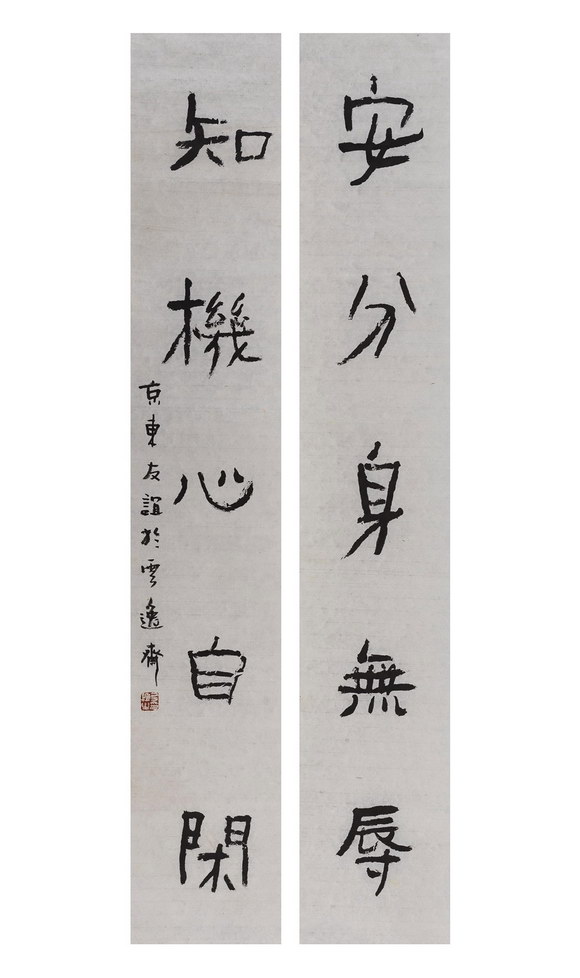 安分身無辱
知機心自閑
京東友誼於雲逸齋